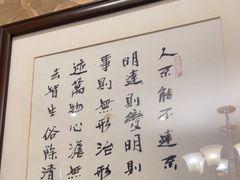 人不能不達不
明達則變明則
事則無形治形
萬物心無
去智生俗除清